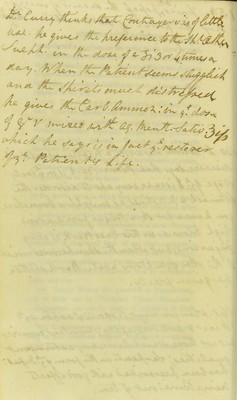 Dr. Currey thinks that Contrayerva is of little
use. he gives the preference to the Spt. Æther
Sulph. in the dose of a Zi 3 or 4 times a
day. When the Patient seems sluggish
and the Spirits much distressed
he gives the Carb. Ammon: in ye. dose
of gr V mixed with Aq. Menth. Sativ ℥iſs
which he says is in fact ye. restorer
of ye. Patients Life.